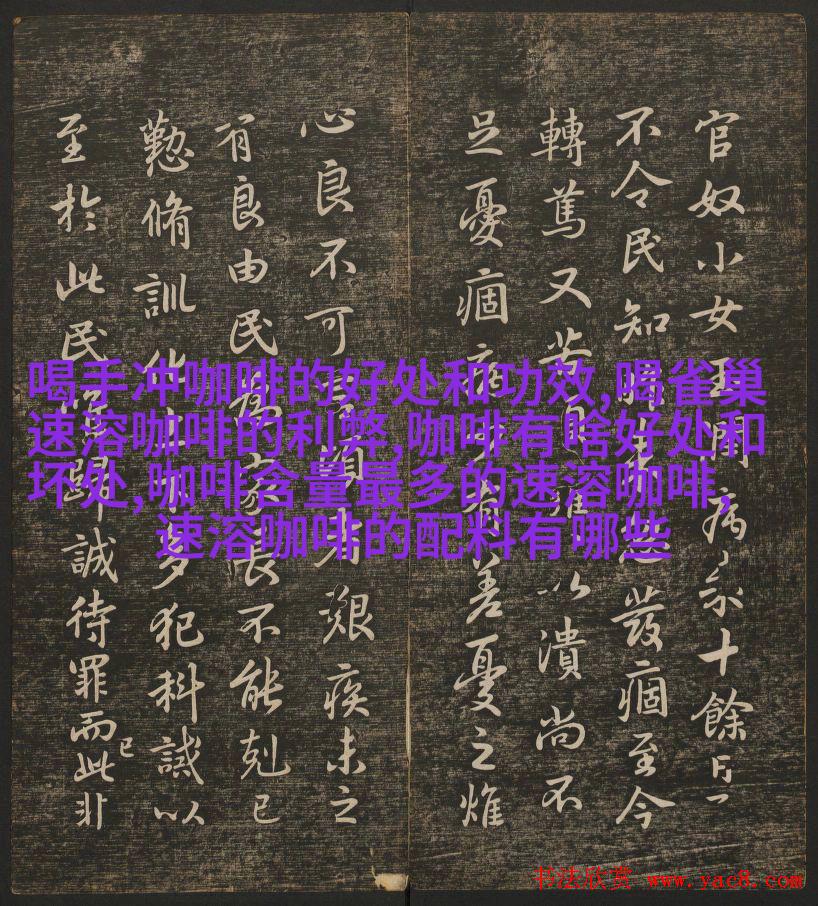 喝手冲咖啡的好处和功效,喝雀巢
速溶咖啡的利弊,咖啡有啥好处和
坏处,咖啡含量最多的速溶咖啡,
速溶咖啡的配料有哪些
官奴小女玉閏病來十餘日了
不令民知發痼至今
轉篤又苦以潰尚不
足憂痼病少有差憂之燋
心良不可言頃者艱疾未之
有良由民為家長不能剋己
懃脩訓化上下多犯科誡以
至於此民歸誠待罪而已此非
书法欣赏 www.yac8.com